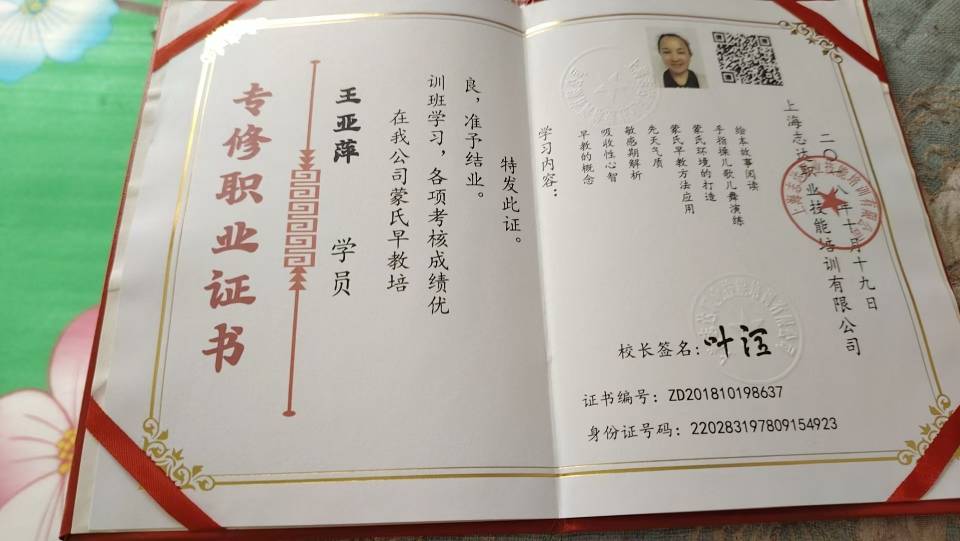 专修职业证书
王亚萍 学员
在我公司蒙氏早教培
训班学习，各项考核成绩优
良，准予结业。
特发此证。
学习内容：
早教的概念
吸收性心智
敏感期解析
先天气质
蒙氏早教方法应用
蒙氏环境的打造
手指操儿歌儿舞演练
绘本故事阅读
上海志达职业技能培训有限公司
二〇一八年十月十九日
校长签名：
证书编号：ZD201810198637
身份证号码：220283197809154923